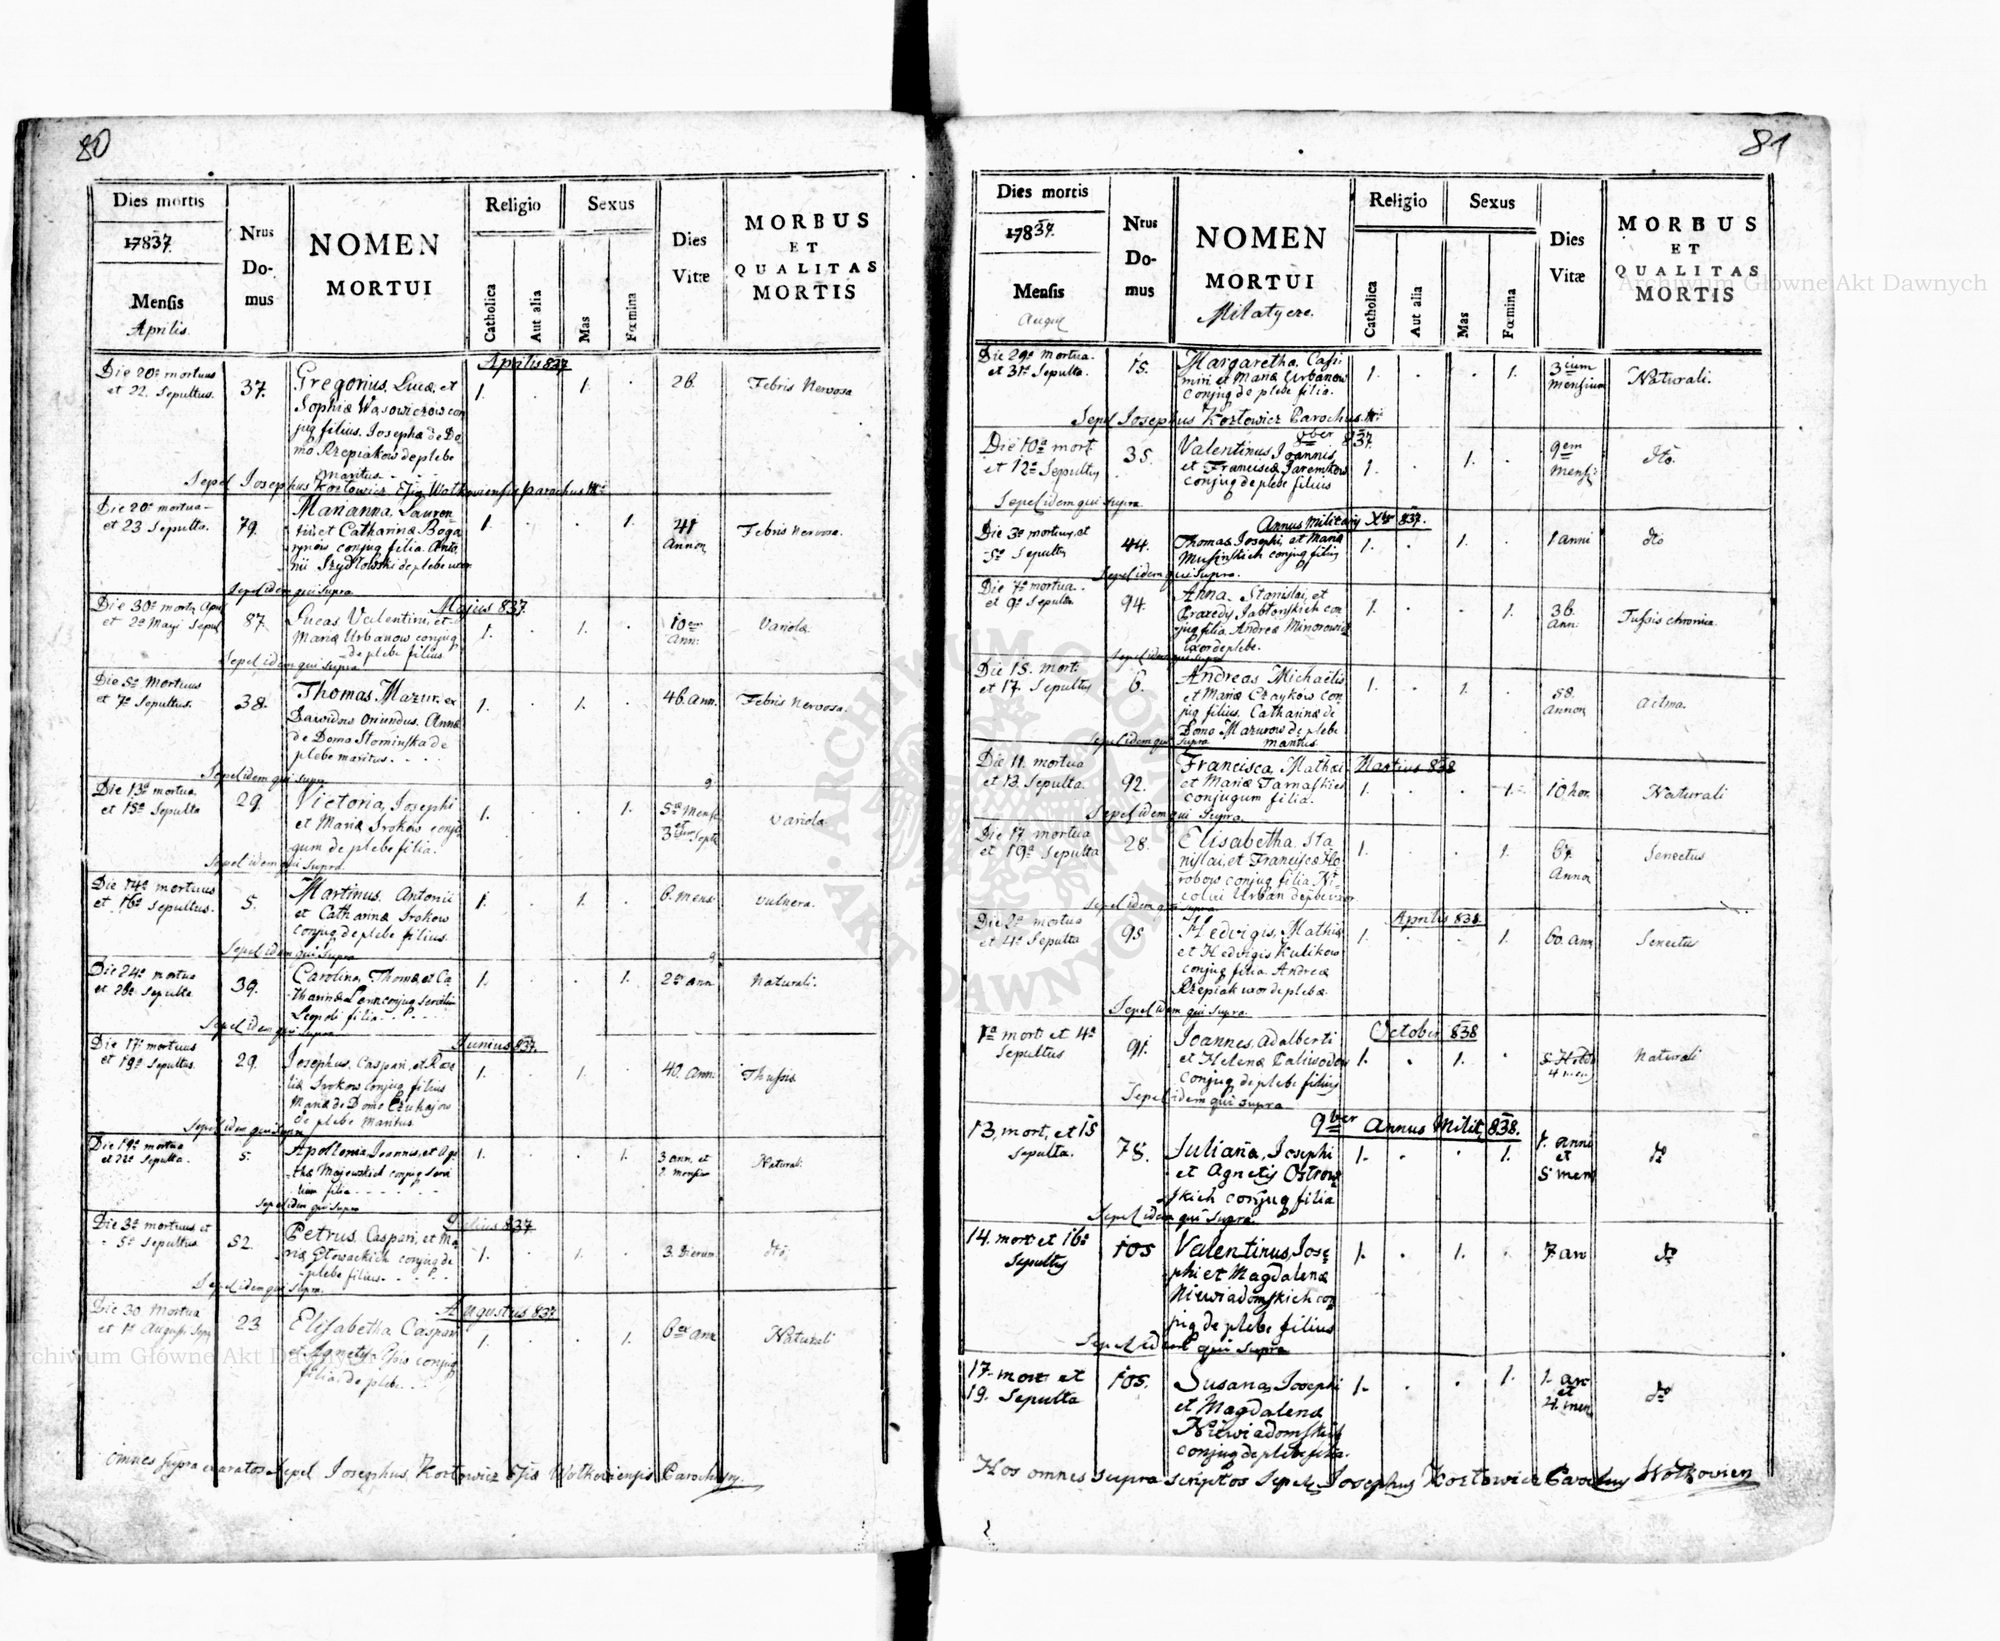 80
Dies mortis
17837.
Mensis
Aprilis.
Nrus
Do-
mus
NOMEN
MORTUI
Religio
Catholica
Aut alia
Sexus
Mas
Fœmina
Dies
Vitæ
MORBUS
ET
QUALITAS
MORTIS
Aprilis 837
Die 20ª mortuus
et 22. Sepultus.
37.
Gregorius, Lucæ et
Sophiæ Wąsowiczów con
jug filius. Josephæ de Do
mo Rzepiaków de plebe
maritus.
1. . 1. .
26.
Febris Nervosa
Sepel Josephus Kozłowicz Ejus Wołkowiensis parochus
Die 20ª mortua
et 23 Sepulta.
79.
Marianna, Lauren-
tii et Catharinæ Boga
conjug filia. Anto
nii Szydłowski de plebe uxor
1. . . 1.
41
Annor
Febris Nervosa.
Sepel idem qui Supra
Majus 837.
Die 30ª mort Apr
et 2ª Maji Sepul
87.
Lucas Valentini, et
Mariæ Urbanow conjug
de plebe filius
1. . 1. .
10
Ann:
Variola
Sepel idem qui Supra
Die 5ª Mortuus
et 7ª Sepultus.
38.
Thomas Mazur, ex
oriundus. Annæ
de Domo Słomińska de
plebe maritus.
1. . 1. .
46. Ann.
Febris Nervosa.
Sepel idem qui supra
Die 13ª mortua
et 15ª Sepulta
29.
Victoria, Josephi
et Mariæ Srokow conju
gum de plebe filia.
1. . . 1.
5 Mens
et
3 Sept
Variola
Sepel idem qui Supra.
Die 14ª mortuus
et 16ª Sepultus.
5.
Martinus, Antonii
et Catharinæ Srokow
conjug de plebe filius.
1. . 1. .
6. Mens
Vulnera.
Sepel idem qui Supra
Die 24ª mortua
et 26ª Sepulta
39.
Carolina, Thomæ et Ca
tharinæ conjug
filia
1. . . 1.
2 ann
Naturali.
Sepel idem qui Supra
Junius 837.
Die 17ª mortuus
et 19ª Sepultus.
29.
Josephus, Caspari, et
Srokow conjug filius
Mariæ de Domo Czuhajow
de plebe Maritus.
1. . 1. .
40. Ann:
Thussis.
Sepel idem qui Supra
Die 19ª mortua
Sepulta.
5.
Apollonia, Joannis, et
Majewskich conjug
filia
1. . . 1.
3 ann. et
2. mensium
Naturali.
Sepel idem qui Supra
Julius 837
Die 3ª mortuus et
5ª Sepultus
52.
Petrus, Caspari, et Ma
riæ Głowackich conjug de
plebe filius.
1. . 1. .
3 Dierum.
dto.
Sepel idem qui Supra.
Augustus 837
Die 30 Mortua
et 1ª Augusti Sepul
23
Elisabetha Caspari
et Agnetis conjug
filia de plebe
1. . . 1.
6 Ann
Naturali
omnes supra exaratos sepel Josephus Kozłowicz Wołkowiensis Parochus
81
Dies mortis
17837.
Mensis
Augus
Nrus
Do-
mus
NOMEN
MORTUI
Religio
Catholica
Aut alia
Sexus
Mas
Fœmina
Dies
Vitæ
MORBUS
ET
QUALITAS
MORTIS
Die 29ª mortua.
et 31ª Sepulta.
15.
Margaretha, Casi
miri et Mariæ Urbanow
conjug de plebe filia.
1. . . 1.
3
Mensium
Naturali.
Sepel Josephus Kozłowicz Parochus
8ber 837.
Die 10ª mort
et 12ª Sepultus
35.
Valentinus, Joannis,
et Franciscæ Jaremkow
conjug de plebe filius
1. . 1. .
9em
Mensi
dto.
Sepel idem qui Supra
Annus Militaris Xbr 837.
Die 3ª mortuus, et
5ª Sepultus
44.
Thomas, Josephi, et Mariæ
Musinskich conjug filius
1. . 1. .
1 anni
dto
Sepel idem qui Supra.
Die 7ª mortua.
et 9ª Sepulta
94.
Anna, Stanislai, et
Praxedis, Jabłonskich con
jug filia. Andreæ
uxor de plebe.
1. . . 1.
36.
Ann:
Tussis chronica.
Sepel idem qui Supra
Die 15. mort
et 17. Sepultus
6.
Andreas, Michaelis
et Mariæ Czaykow con
jug filius. Catharinæ de
Domo Mazurow de plebe
maritus
1. . 1. .
58.
Annor
Astma.
Sepel idem qui Supra
Martius 838
Die 11. mortua
et 13. Sepulta.
92.
Francisca, Mathæi
et Mariæ Tarnaskich
conjugum filia.
1. . . 1.
10 hor.
Naturali
Sepel idem qui Supra.
Die 17 mortua
et 19ª Sepulta
28.
Elisabetha, Sta
nislai, et Franciscæ
conjug filia. Ni
colai Urban de plebe uxor
1. . . 1.
Annor
Senectus
Sepel idem qui supra.
Aprilis 838.
Die 2ª mortua
et 4ª Sepulta
95.
Hedvigis, Mathiæ
et Hedvigis Kulikow
conjug filia. Andreæ
Rzepiak uxor de plebe.
1. . . 1.
60. ann
Senectus
Sepel idem qui Supra.
October 838
1ª mort et 4ª
Sepultus
91.
Joannes, Adalberti
et Helenæ
conjug de plebe filius
1. . 1. .
Naturali
Sepel idem qui supra
9ber Annus Milit, 838.
13, mort, et 15
Sepulta.
78.
Juliana, Josephi
et Agnetis Ostrow
skich conjug filia
1. . . 1.
1. anni
et
5 mens
do
Sepel idem qui Supra.
14. mort et 16ª
Sepultus
105
Valentinus, Jose
phi et Magdalenæ
Niewiadomskich con
jug de plebe filius
1. . 1. .
7 an
do
Sepel idem qui Supra
17. mort et
19. Sepulta
105.
Susana, Josephi
et Magdalenæ
Niewiadomskich
conjug de plebe filia.
1. . . 1.
1. an
et
4. men
do
Hos omnes supra scriptos Sepel Josephus Kozłowicz Parochus Wołkowien
Archiwum Główne Akt Dawnych
Archiwum Główne Akt Dawnych
ARCHIWUM GŁÓWNE
AKT DAWNYCH